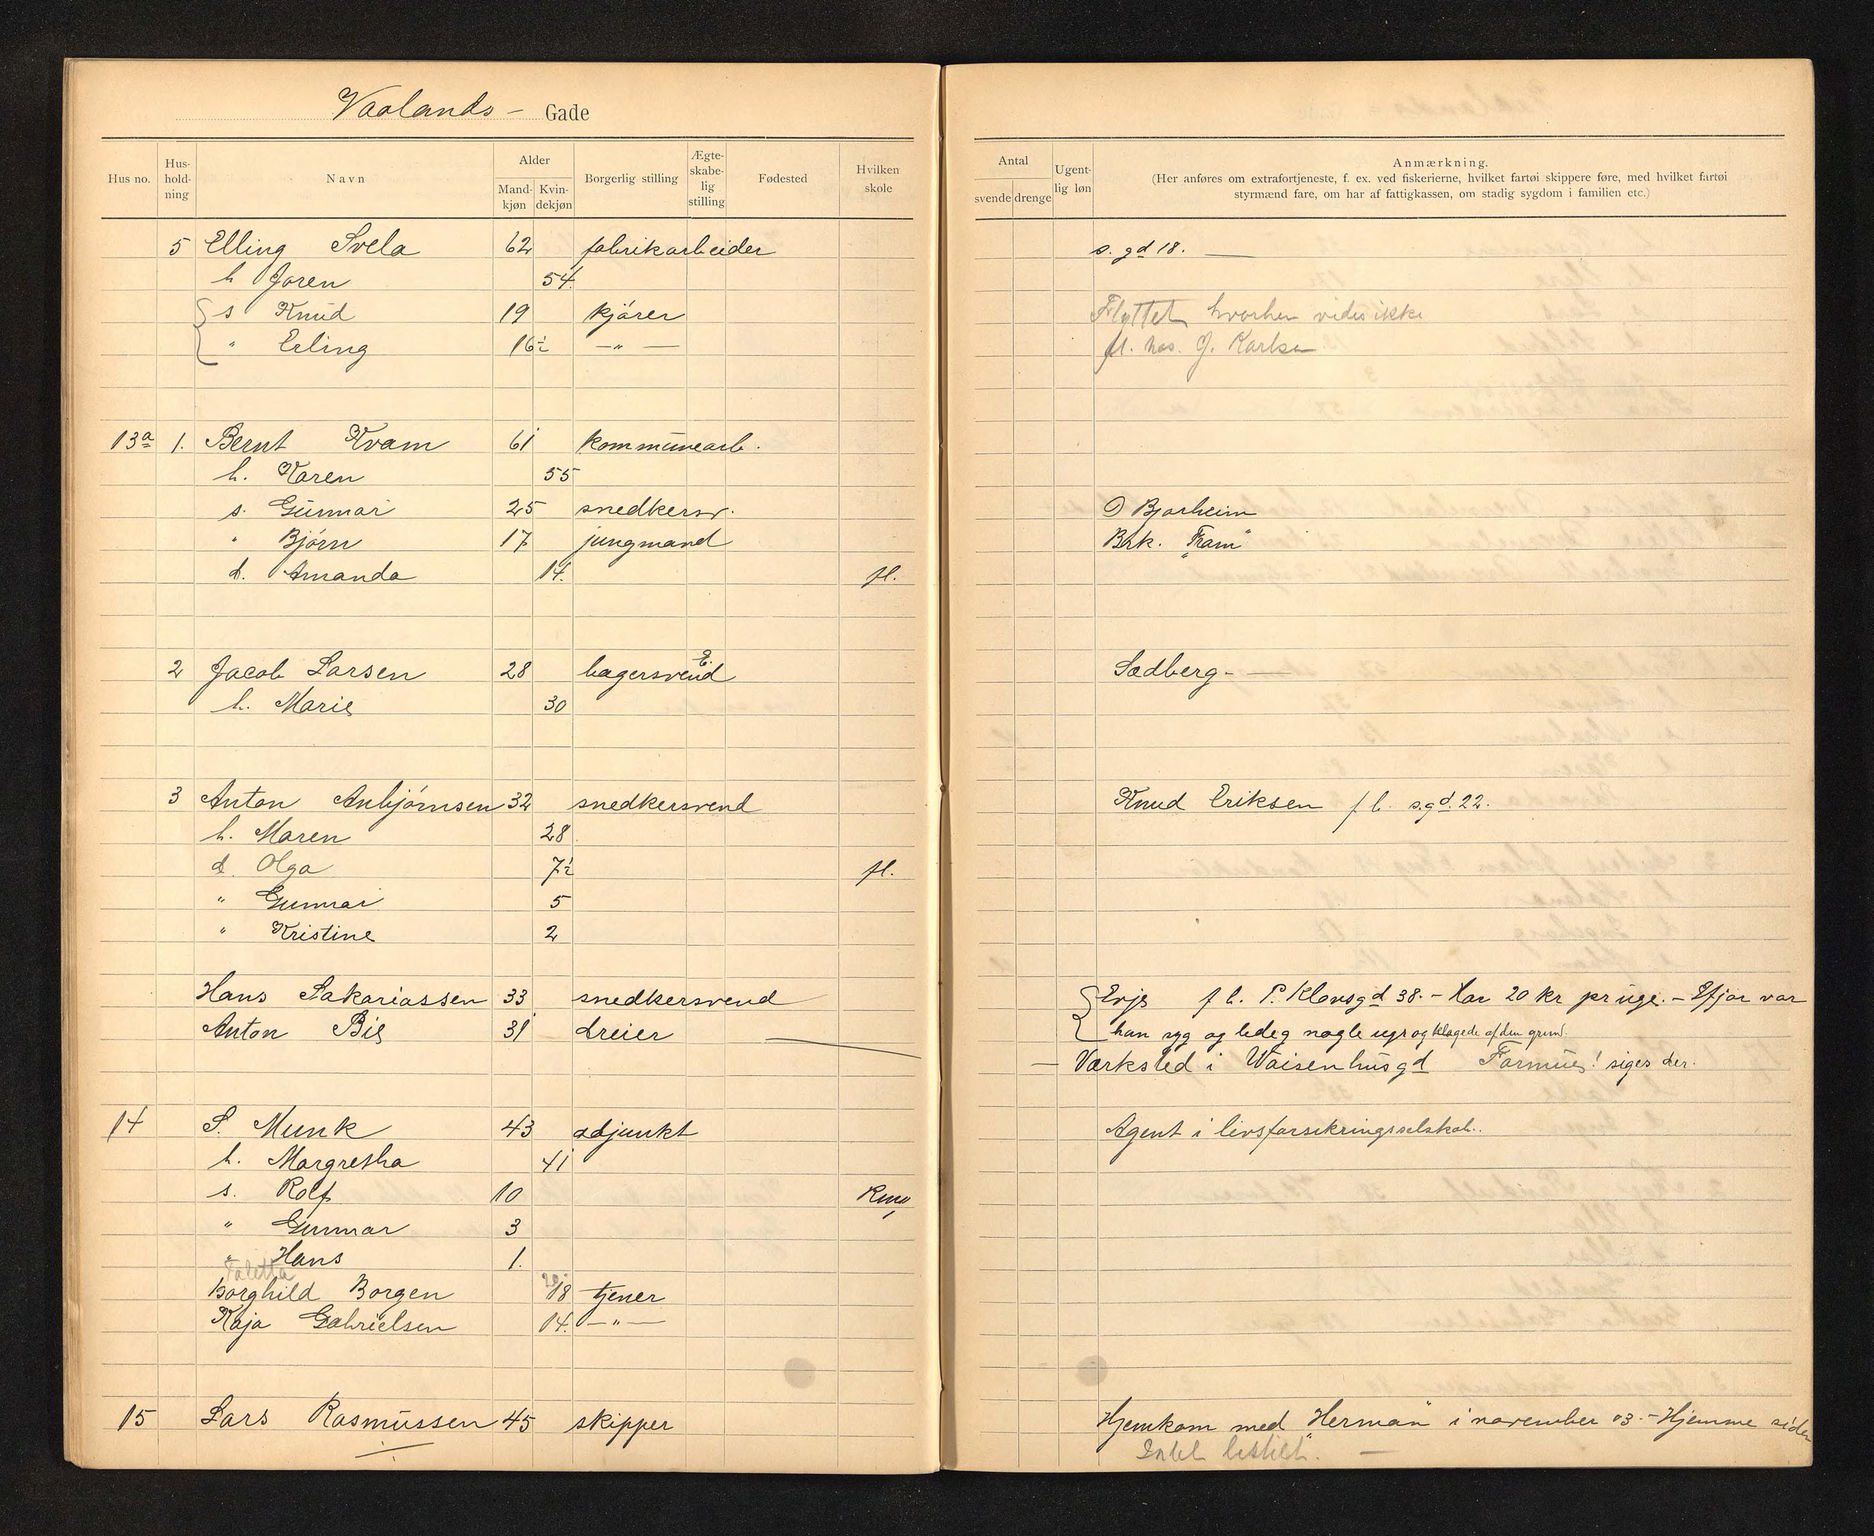 Vaalands - Gade
Hus no. Hus-hold-ning Navn Alder Mand-kjøn Kvin-dekjøn Borgerlig stilling Ægte-skabe-lig stilling Fødested Hvilken skole
Antal svende drenge Ugent-lig løn Anmærkning.
(Her anføres om extrafortjeneste, f. ex. ved fiskerierne, hvilket fartøi skippere føre, med hvilket fartøi
styrmænd fare, om har af fattigkassen, om stadig sygdom i familien etc.)
5 Elling Svela 62 fabrikarbeider s. gd 18. —
h Joren 54.
s Knud 19 kjører Flyttet hvorhen vides ikke
" Erling 16½ — " — fl. hos. G. Karlsen
13a 1. Bernt Kvam 61 kommunearb.
h. Karen 55
s. Gunnar 25 snedkersv. O Bjorheim
" Bjørn 17 jungmand Brk. "Fram"
d. Amanda 14. fl.
2 Jacob Larsen 28 bagersvend Sædberg. —
h. Marie 30
3 Anton Anbjørnsen 32 snedkersvend Knud Eriksen f b. s.gd. 22.
h. Maren 28
d. Olga 7½ fl.
" Gunnar 5
" Kristine 2
Hans Sakariassen 33 snedkersvend Evje f b. P. Klowsgd 38. - har 20 kr pr uge. - Ifjor var
Anton Bie 31 dreier han syg og ledig nogle uger og klagede af den grund.
— Værksted i Waisenhusgd Formue! siges der.
14 S. Munk 43 adjunkt Agent i livsforsikringsselskab..
h. Margretha 41
s. Rolf 10 Kma
" Gunnar 3
" Hans 1.
Taletta
Borghild Borgen 18 tjener
Kaja Gabrielsen 14. — " —
15 Lars Rasmussen 45 skipper Hjemkom med "Herman" i november 03. - Hjemme siden
Intet bestilt. —